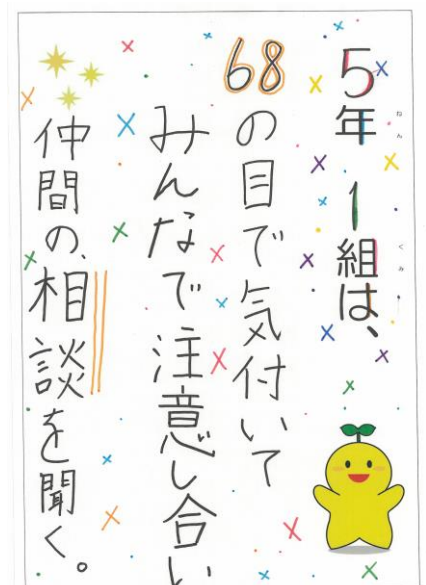 5年 1組は、
68の目で気付いて
みんなで注意し合い
仲間の、相談を聞く。